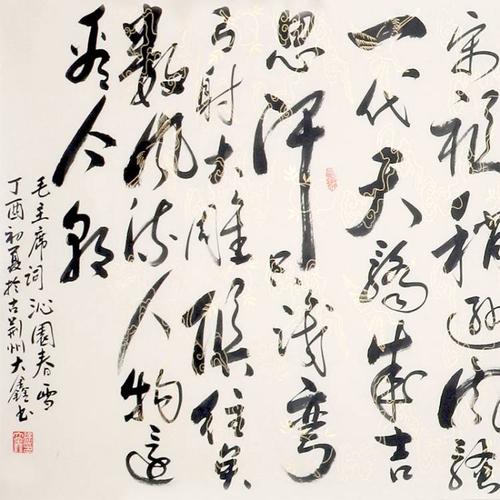 宋祖稍逊风骚
一代天骄成吉
思汗只识弯
弓射大雕俱往矣
数风流人物还
看今朝
毛主席词沁園春雪
丁酉初夏於古荆州大鑫书